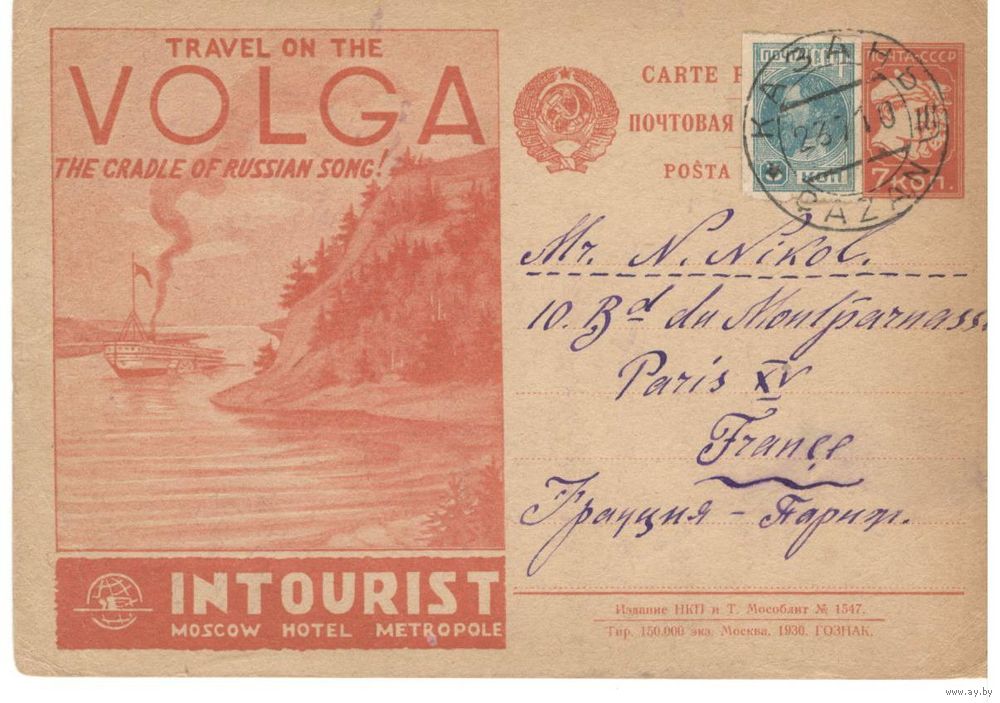 TRAVEL ON THE
VOLGA
THE CRADLE OF RUSSIAN SONG!
INTOURIST
MOSCOW HOTEL METROPOLE
CARTE
ПОЧТОВАЯ
POŜTA
ПОЧТА
КОП
ПОЧТА СССР
7 КОП.
КАЗАНЬ
KAZAN
Mr. N. Nikol.
10. Bd du Montparnass.
Paris XV
France
Франция - Париж.
Издание НКП и Т. Мособлит № 1547.
Тир. 150.000 экз. Москва. 1930. ГОЗНАК.
www.ay.by